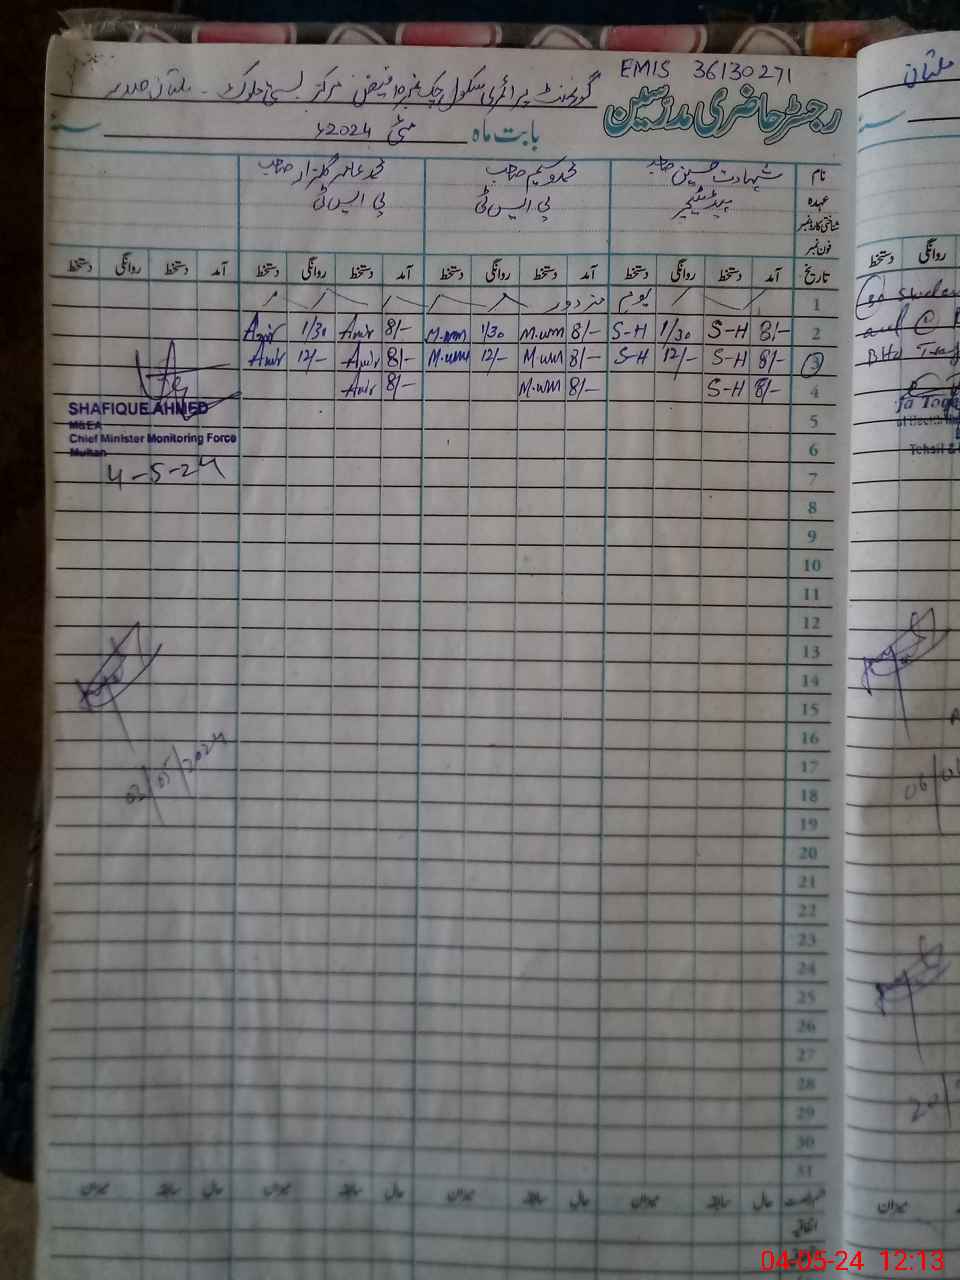 EMIS 36130271
گورنمنٹ پرائمری سکول چک نمبر 10 فیض مرکز بستی ملوک ۔ ملتان صدر
رجسٹر حاضری مدرسین
بابت ماہ مئی 2024ء
نام شہادت حسین صاحب محمد وسیم صاحب محمد عامر گلزار صاحب
عہدہ ہیڈ ٹیچر پی ایس ٹی پی ایس ٹی
شناختی کارڈ نمبر
فون نمبر
تاریخ آمد دستخط روانگی دستخط آمد دستخط روانگی دستخط آمد دستخط روانگی دستخط آمد دستخط روانگی دستخط
1 یوم مزدور
2 8/- S-H 1/30 S-H 8/- M.wm 1/30 M.wm 8/- Amir 1/30 Amir
3 8/- S-H 12/- S-H 8/- M.wm 12/- M.wm 8/- Amir 12/- Amir
4 8/- S-H 8/- M.wm 8/- Amir
SHAFIQUE AHMED
M&EA
Chief Minister Monitoring Force
Multan
4-5-24
5
6
7
8
9
10
11
12
13
14
15
16
17
18
19
20
21
22
23
24
25
26
27
28
29
30
31
03/05/2024
حال سابقہ میزان حال سابقہ میزان حال سابقہ میزان حال سابقہ میزان
اتفاقیہ
ملتان
روانگی دستخط
06/
20/
میزان
04-05-24 12:13